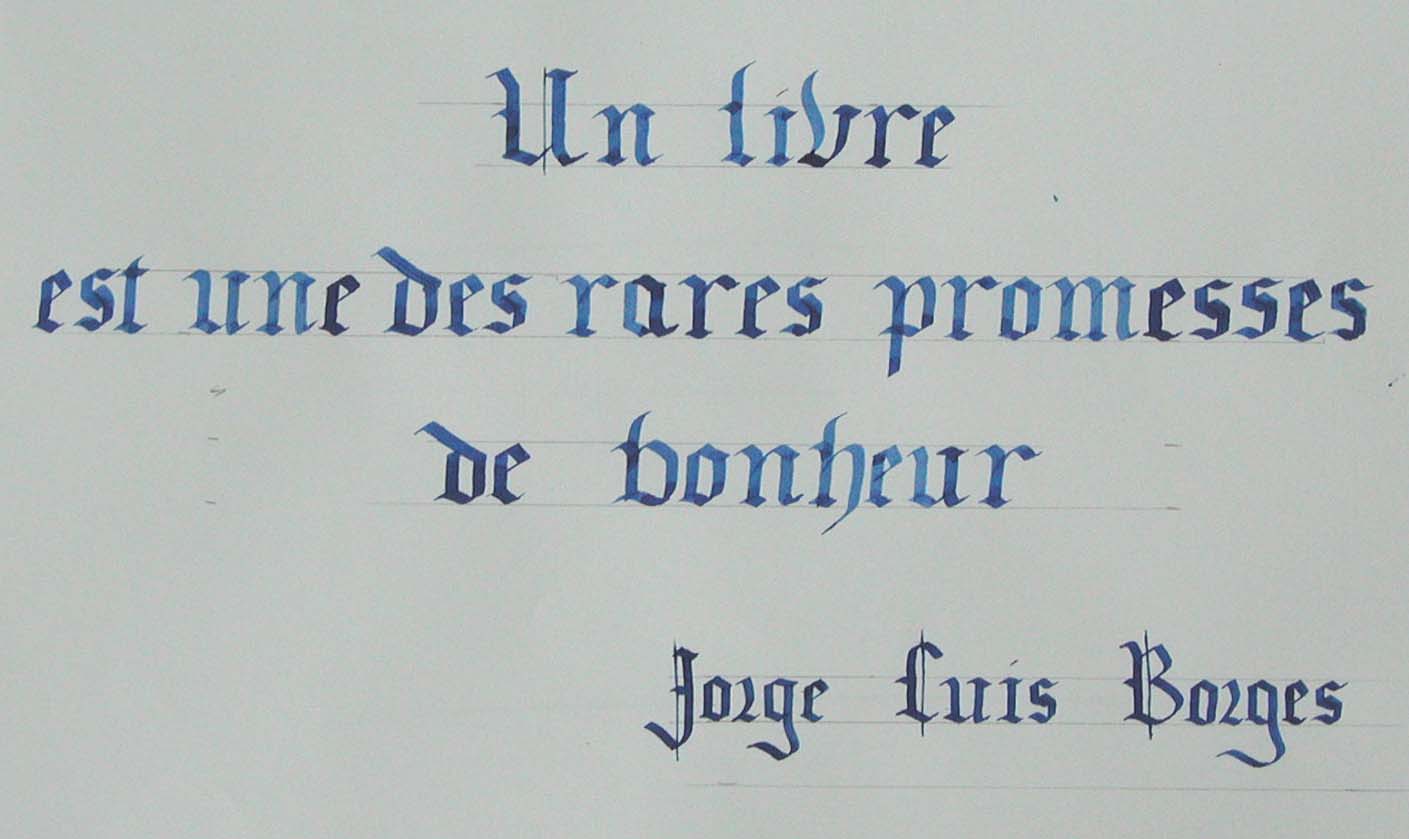 Un livre
est une des rares promesses
de bonheur
Jorge Luis Borges